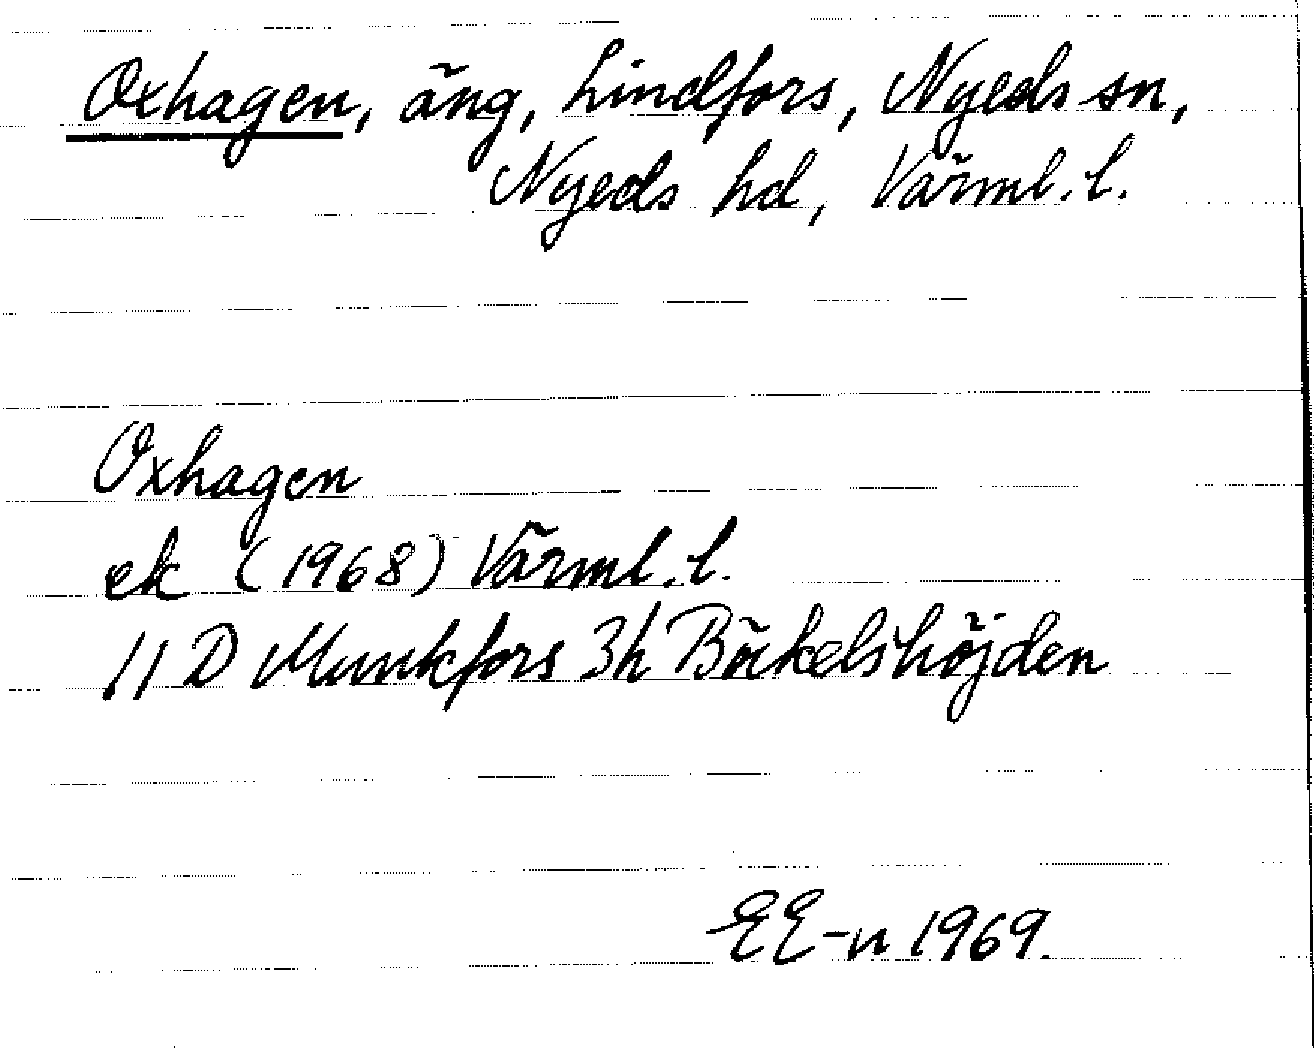 Oxhagen, äng, Lindfors, Nyeds sn,
Nyeds hd, Värml. l.
Oxhagen
ek (1968) Värml. l.
11 D Munkfors 3h Böckelshöjden
EE-n 1969.